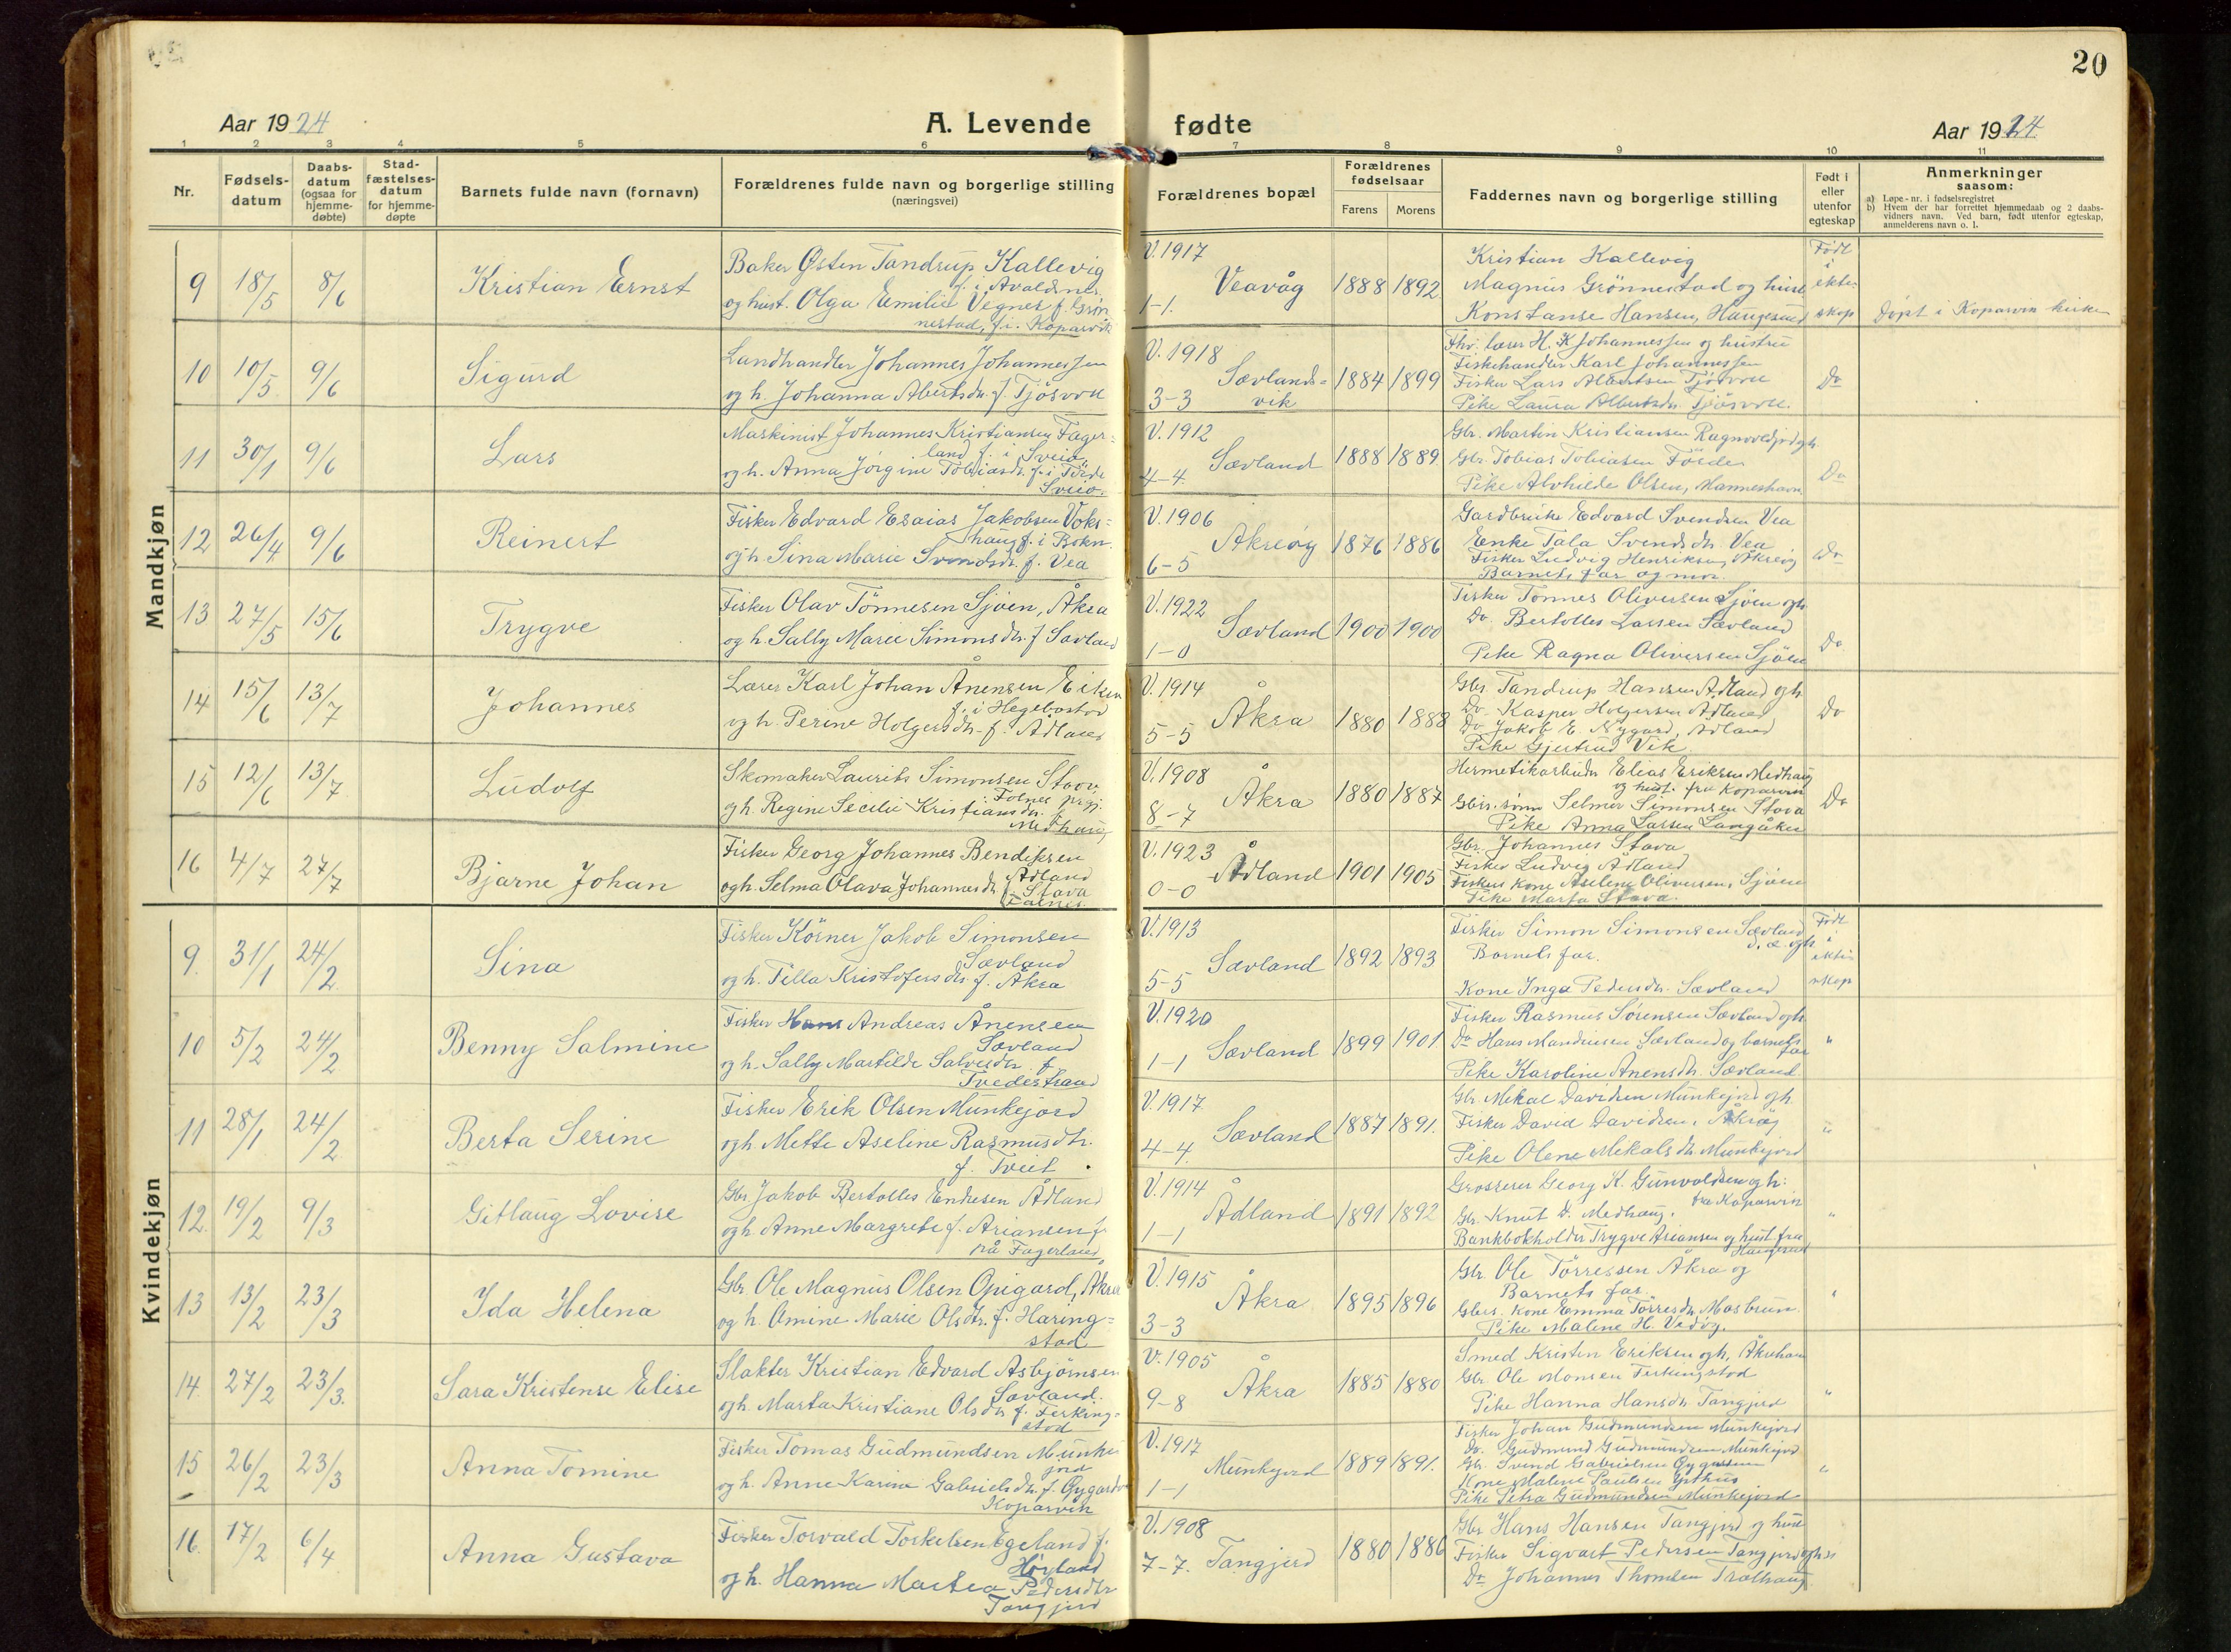 20
Aar 1924
A. Levende fødte
Aar 1924
1 2 3 4 5 6 7 8 9 10 11
Nr.
Fødsels-
datum
Daabs-
datum
(ogsaa for
hjemme-
døbte)
Stad-
fæstelses-
datum
for hjemme-
døpte
Barnets fulde navn (fornavn)
Forældrenes fulde navn og borgerlige stilling
(næringsvei)
Forældrenes bopæl
Forældrenes
fødselsaar
Farens Morens
Faddernes navn og borgerlige stilling
Født i
eller
utenfor
egteskap
Anmerkninger
saasom:
a) Løpe-nr. i fødselsregistret
b) Hvem der har forrettet hjemmedaab og 2 daabs-
vidners navn. Ved barn, født utenfor egteskap,
anmelderens navn o. l.
Mandkjøn
9 18/5 8/6 Kristian Ernst
Baker Østen Tandrup Kallevig
f. i Avaldsnes
og hust. Olga Emilie Vegner f. Grøn
nestad, f. i. Koparvik
V. 1917
Veavåg
1-1.
1888 1892
Kristian Kallevig
Magnus Grönnestad og hust
Konstanse Hansen, Haugesund
Født
i
ekte-
skap
Døpt i Koparvik kirke
10 10/5 9/6 Sigurd
Landhandler Johannes Johannessen
og h. Johanna Abertsdr. f. Tjösvoll
V. 1918
Sævlands=
vik
3-3
1884 1899
Fhv. lærer H. K Johannessen og hustru
Fiskehandler Karl Johannessen
Fisker Lars Albertsen Tjösvoll
Pike Laura Albertsdr. Tjösvoll.
Do
11 30/1 9/6 Lars
Maskinist Johannes Kristiansen Fager=
land f. i Sveio
og h. Anna Jörgine Tobiasdr. f. i Förde
Sveio.
V. 1912
Sævland
4-4
1888 1889
Gbr. Martin Kristiansen
Gbr. Tobias Tobiasen Förde
Pike Alvhilde Olsen, Manneshavn
Do
12 26/4 9/6 Reinert
Fisker Edvard Esaias Jakobsen Voks=
haug f. i Bokn
og h. Sina Marie Svendsdr. f. Vea
V. 1906
Åkreög
6-5
1876 1886
Gardbruker Edvard Svendsen Vea
Enke Tala Svendsdr. Vea
Fisker Ludvig Henriksen, Åkreög
Barnets far og mor.
Do
13 27/5 15/6 Trygve
Fisker Olav Tönnesen Sjöen, Åkra
og h. Sally Marie Simonsdr. f Sævland
V. 1922
Sævland
1-0
1900 1900
Fisker Tönnes Oliversen Sjöen ogh.
Do. Bertolles Larsen Sævland
Pike Ragna Oliversen Sjöen
Do
14 15/6 13/7 Johannes
Lærer Karl Johan Ånensen Eiken
f. i Hegebostad
og h. Perine Holgersdr. f. Ådland
V. 1914
Åkra
5-5
1880 1888
Gbr. Tandrup Hansen Ådland ogh
Do. Kasper Holgersen Ådland
Do Jakob E. Nygard, Ådland
Pike Gjertrud Vik
Do
15 12/6 13/7 Ludolf
Skomaker Laurits Simonsen Stava,
Falnes prgj.
og h. Regine Secilie Kristiansdr.
Medhaug
V. 1908
Åkra
8-7
1880 1887
Hermetikarbeider Elias Eriksen Medhaug
og hust. fra Koparvik
Gbrs. sönn Selmer Simonsen Stava
Pike Anna Larsen Langåker
Do
16 4/7 27/7 Bjarne Johan
Fisker Georg Johannes Bendiksen
Ådland
ogh. Selma Olava Johannesdr. f. Stava
Falnes.
V. 1923
Ådland
0-0
1901 1905
Gbr. Johannes Stava
Fisker Ludvig Ådland
Fiskers kone Aselene Oliversen, Sjöen
Pike Marta Stava.
Kvindekjøn
9. 31/1 24/2 Sina
Fisker Körner Jakob Simonsen
Sævland
og h. Tilla Kristofersdr. f. Åkra
V. 1913
Sævland
5-5
1892 1893
Fisker Simon Simonsen Sævland
d. æ. ogh
Barnets far.
Kone Inga Pedersdr. Sævland
Født
i
ekte-
skap
10 5/2 24/2 Benny Salmine
Fisker Hans Andreas Ånensen
Sævland
og h. Sally Martilde Salvesdr f.
Tvedestrand
V. 1920
Sævland
1-1
1899 1901
Fisker Rasmus Sörensen Sævland ogh
Do Hans Mandiusen Sævland og barnets
far
Pike Karoline Ånensdr. Sævland
"
11 28/1 24/2 Berta Serine
Fisker Erik Olsen Munkejord
ogh Mette Aseline Rasmusdtr.
f. Tveit.
V. 1917
Sævland
4-4
1887 1891.
Gbr. Mekal Davidsen Munkejord ogh.
Fisker David Davidsen, Åkreög
Pike Olene Mekalsdr. Munkejord
"
12. 19/2 9/3 Gitlaug Lovise
Gbr Jakob Bertolles Endresen Ådland
ogh Anne Margrete f. Ariansen f.
på Fagerland
V. 1914
Ådland
1-1
1891 1892
Grosserer Georg K. Gunvoldsen og h:
fra Koparvik
Gbr. Knut D. Medhaug.
Bankbokholder Trygve Ariansen og hust. fra
Haugesund
"
13 13/2 23/3 Ida Helena
Gbr. Ole Magnus Olsen Opigard, Åkra
og h. Omine Marie Olsdtr. f. Haring=
stad
V. 1915
Åkra
3-3
1895 1896
Gbr. Ole Törressen Åkra og
Barnets far.
Gbrs. kone Emma Törresdr. Mosbrun.
Pike Malene H. Vedöy.
"
14. 27/2 23/3. Sara Kristense Elise
Slakter Kristian Edvard Asbjörnsen
Sævland.
ogh. Marta Kristiane Olsdr f. Ferking=
stad
V. 1905
Åkra
9-8
1885 1880
Smed Kristen Eriksen ogh, Åkrehamn
Gbr. Ole Monsen Ferkingstad
Pike Hanna Hansdr. Tangjerd
"
15 26/2 23/3 Anna Tomine
Fisker Tomas Gudmundsen Munke
jord
og h. Anne Karine Gabrielsdr. f. Øygarden
Koparvik
V. 1917
Munkejord
1-1
1889 1891.
Fisker Johan Gudmundsen Munkejord
Do. Gudmund Gudmundsen Munkejord
Gbr. Svend Gabrielsen Øygarden
Kone Malene Paulsen
Pike Petra Gudmundsen Munkejord
"
16. 17/2 6/4 Anna Gustava
Fisker Torvald Torkelsen Egeland f.
Höyland
og h. Hanna Martea Pedersdtr
Tangjerd
V. 1908
Tangjerd
7-7.
1880 1886
Gbr Hans Hansen Tangjerd og hust
Fisker Sigvart Pedersen Tangjerd ogh
Do Johannes Thomsen Trælhaug
"